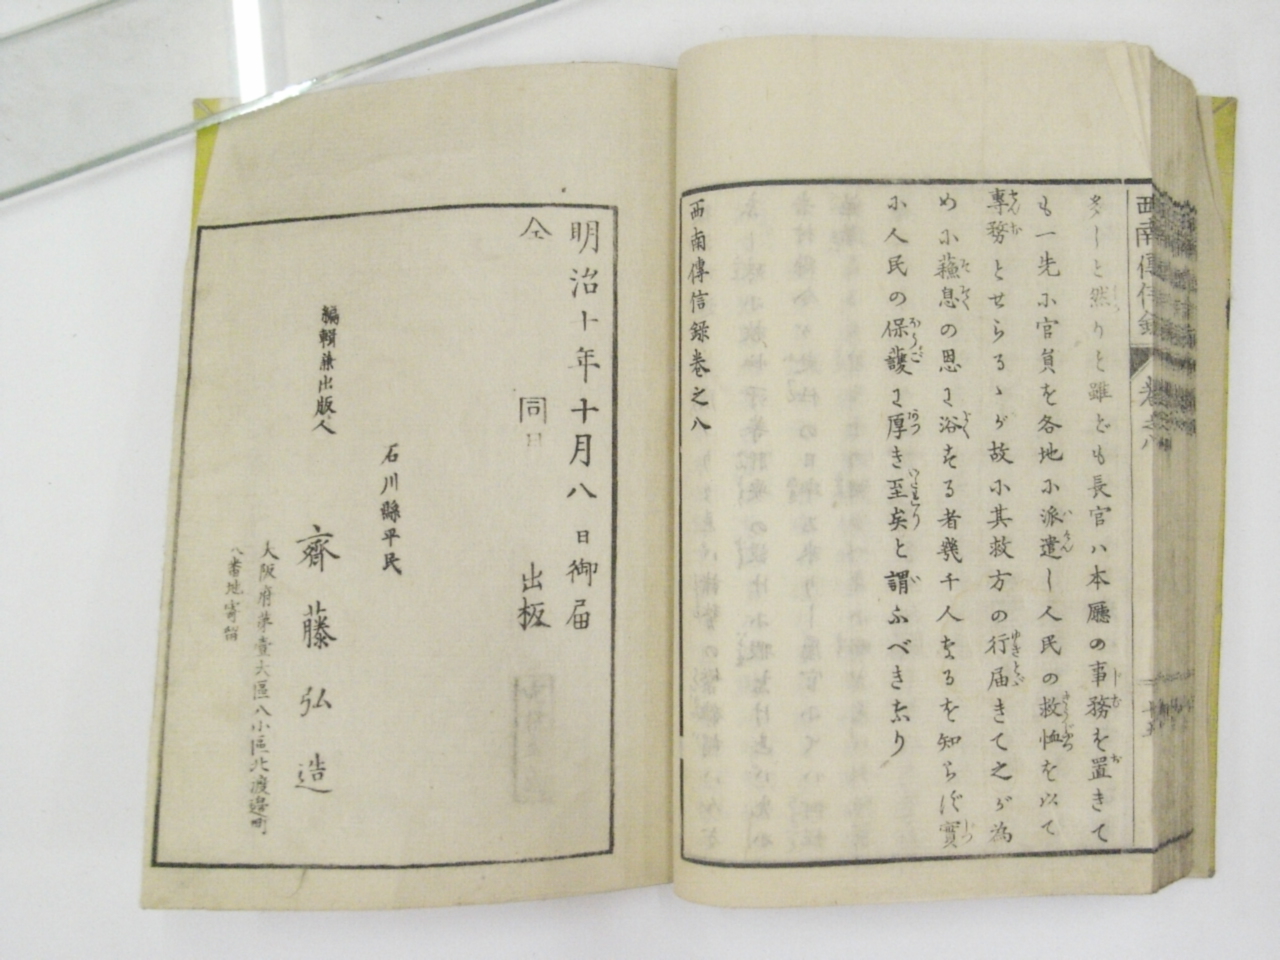 多しと然りと雖ども長官ハ本廳の事務を置きて
も一先ホ官員を各地ホ派遣し人民の救恤を以て
專務とせらるゝが故ホ其救方の行届きて之が為
めホ蘓息の恩に浴する者幾千人なるを知らず實
ホ人民の保護に厚き至矣と謂ふべきなり
西南傳信録巻之八
西南傳信録
巻之八
明治十年十月八日御届
仝 同日 出板
石川縣平民
編輯兼出版人 齊藤弘造
大阪府第壹大區八小區北渡邉町
八番地寄留